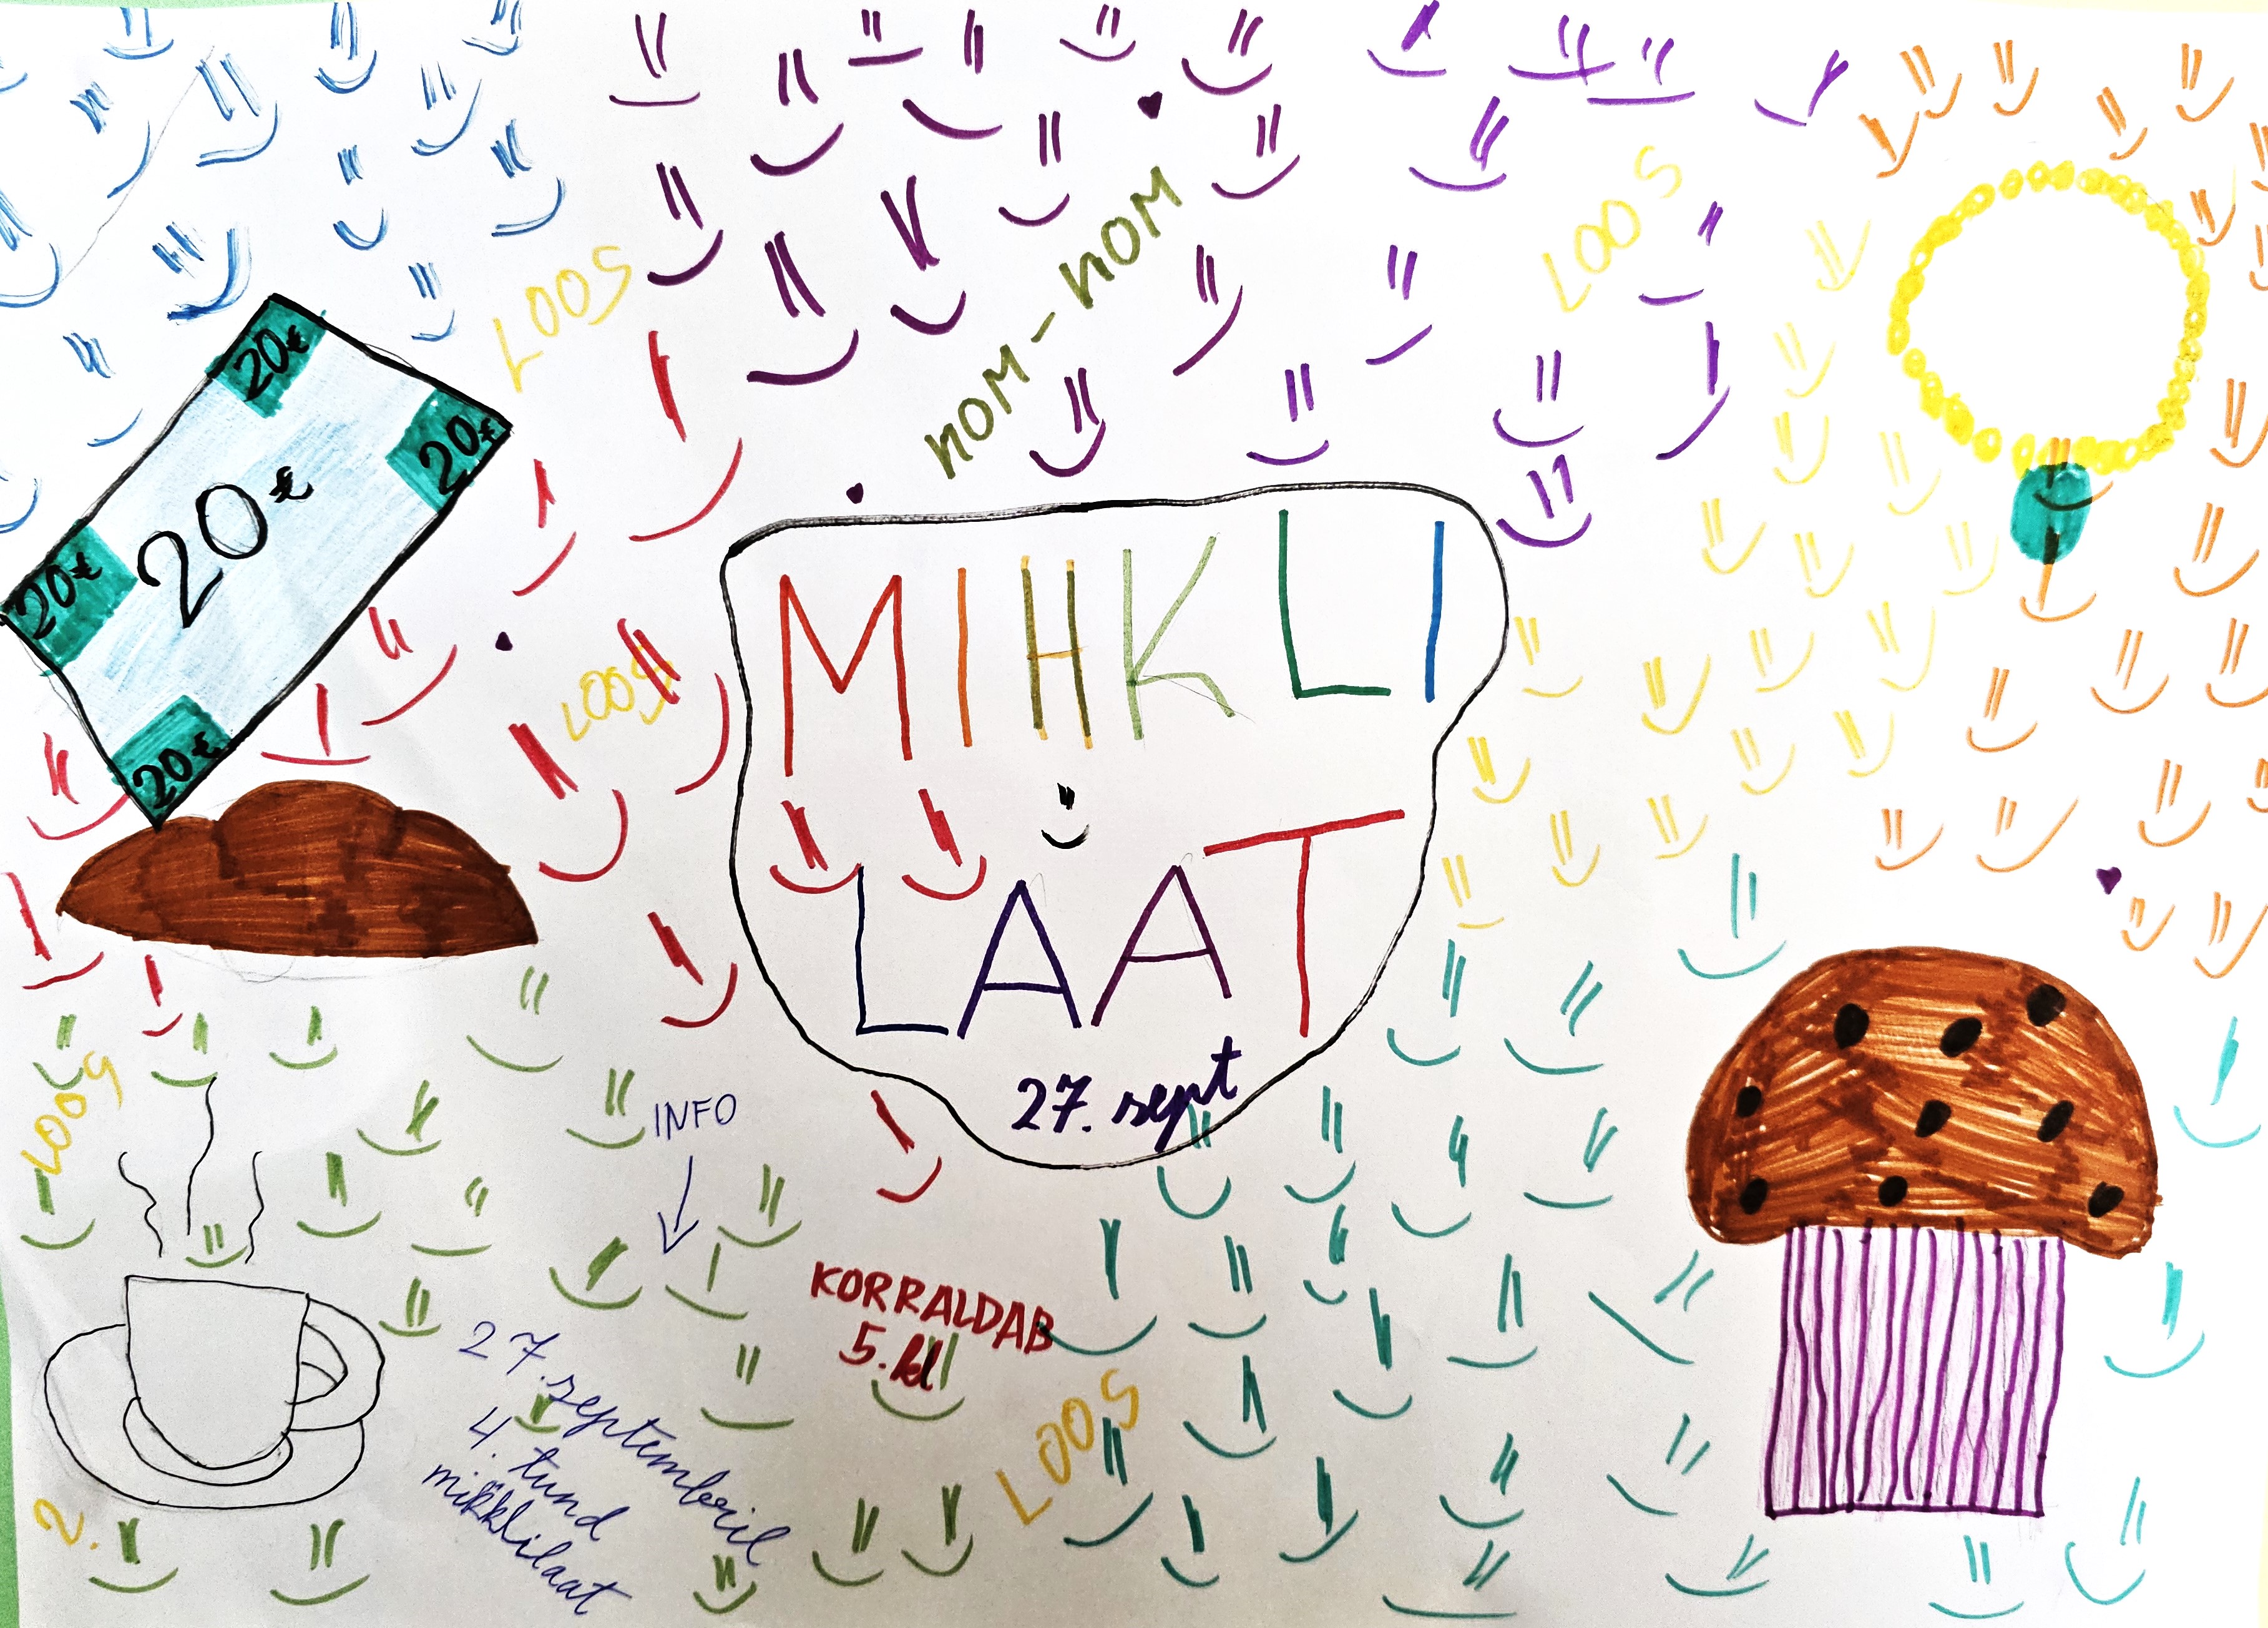 LOOS
NOM-NOM
LOOS
20€
20€
20€
20€
20€
LOOS
MIHKLI
LAAT
27. sept
LOOS
INFO
27. septembril
4. tund
mihklilaat
KORRALDAB
5. kl
LOOS
2.